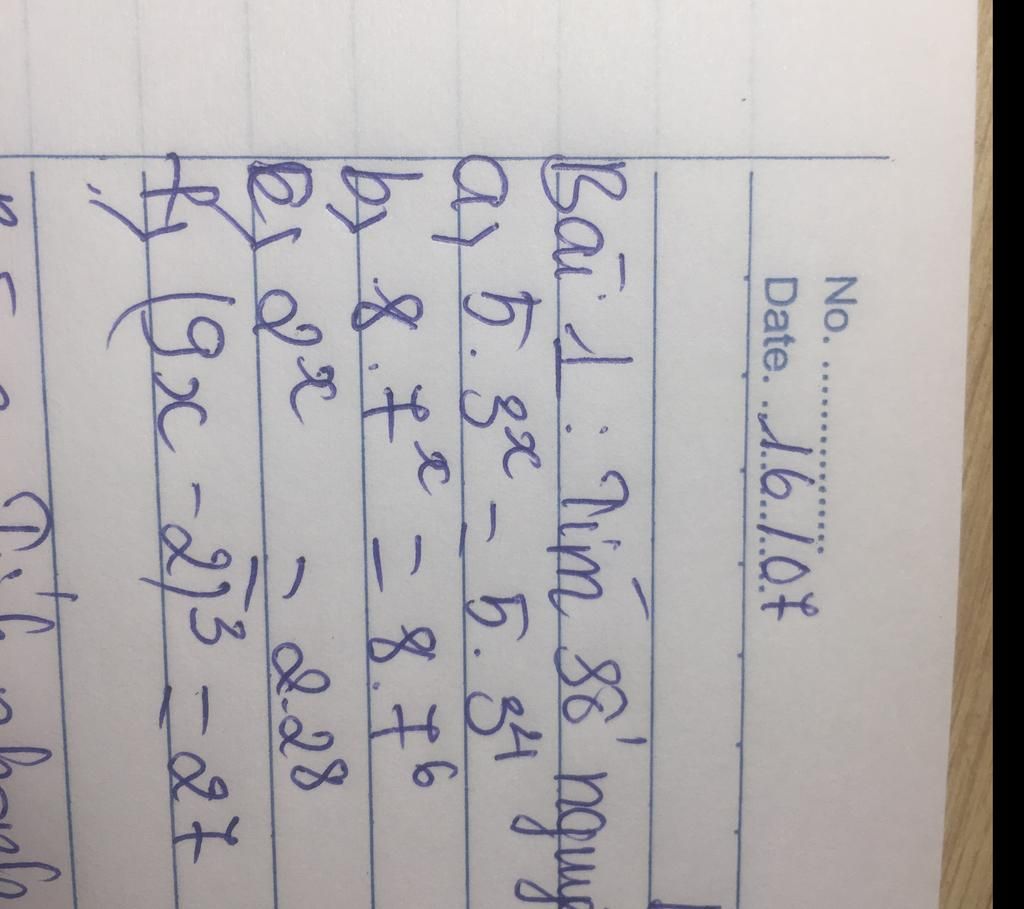 No. ....................
Date. .16/07
Bài 1 : Tìm số nguy
a, 5.3ˣ = 5.3⁴
b, 8.7ˣ = 8.7⁶
e, 2ˣ = 2.2⁸
f, (9x - 2)³ = 27